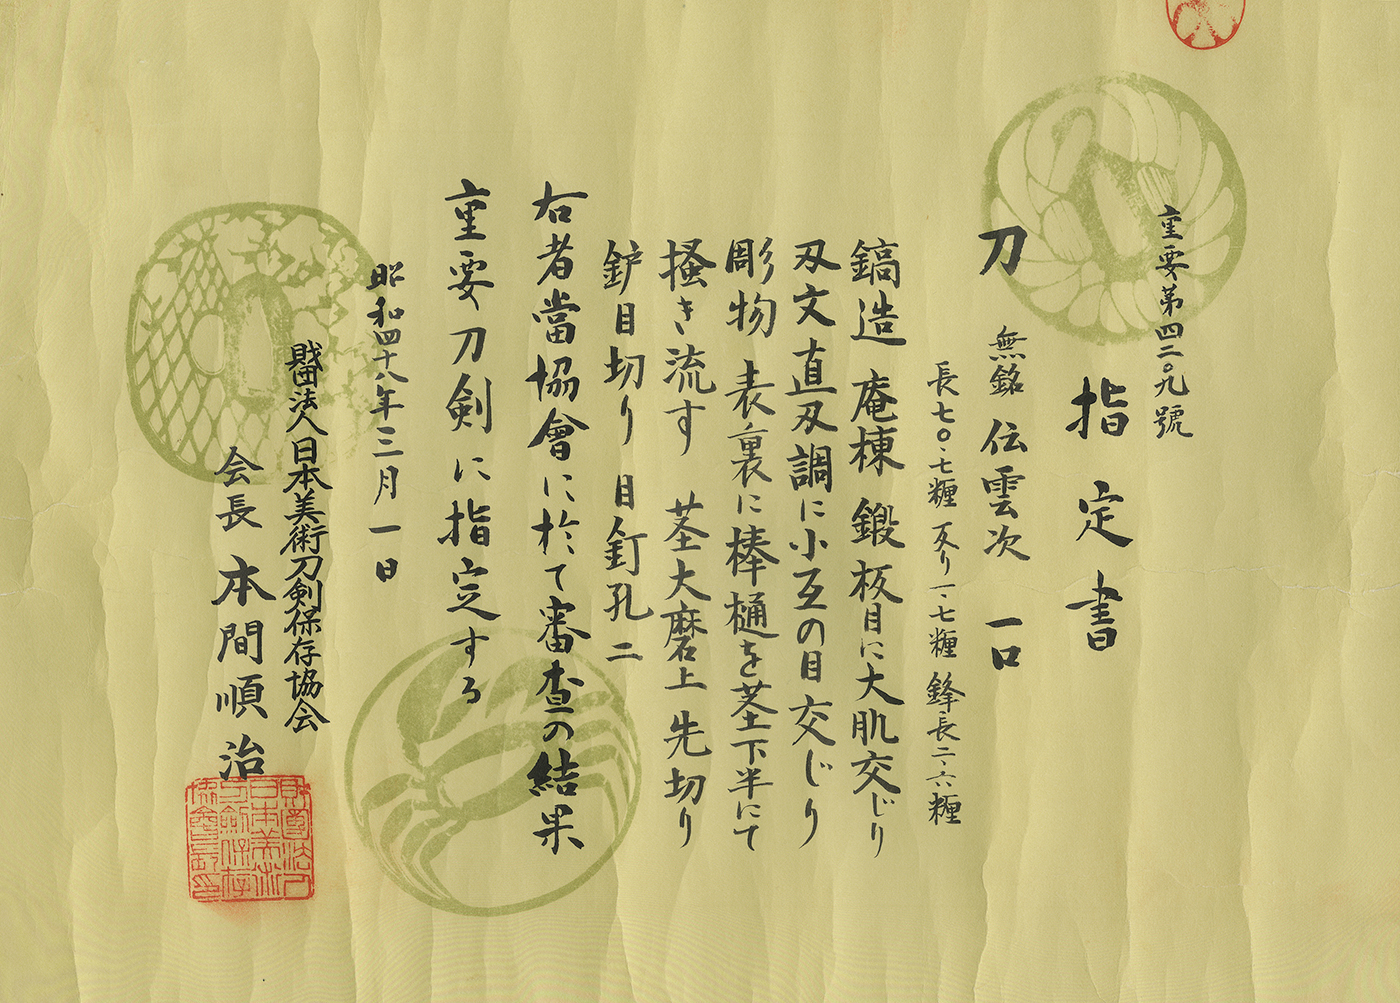 重要第四二〇九號
指定書
刀 無銘 伝雲次 一口
長七〇・七糎 反り一・七糎 鋒長二・六糎
鎬造 庵棟 鍛板目に大肌交じり
刃文直刃調に小互の目交じり
彫物 表裏に棒樋を茎下半にて
掻き流す 茎大磨上 先切り
鈩目切り 目釘孔二
右者當協會に於て審査の結果
重要刀剣に指定する
昭和四十八年三月一日
財団法人日本美術刀剣保存協会
会長 本間順治
財團法人
日本美術
刀劍保存
協會長印